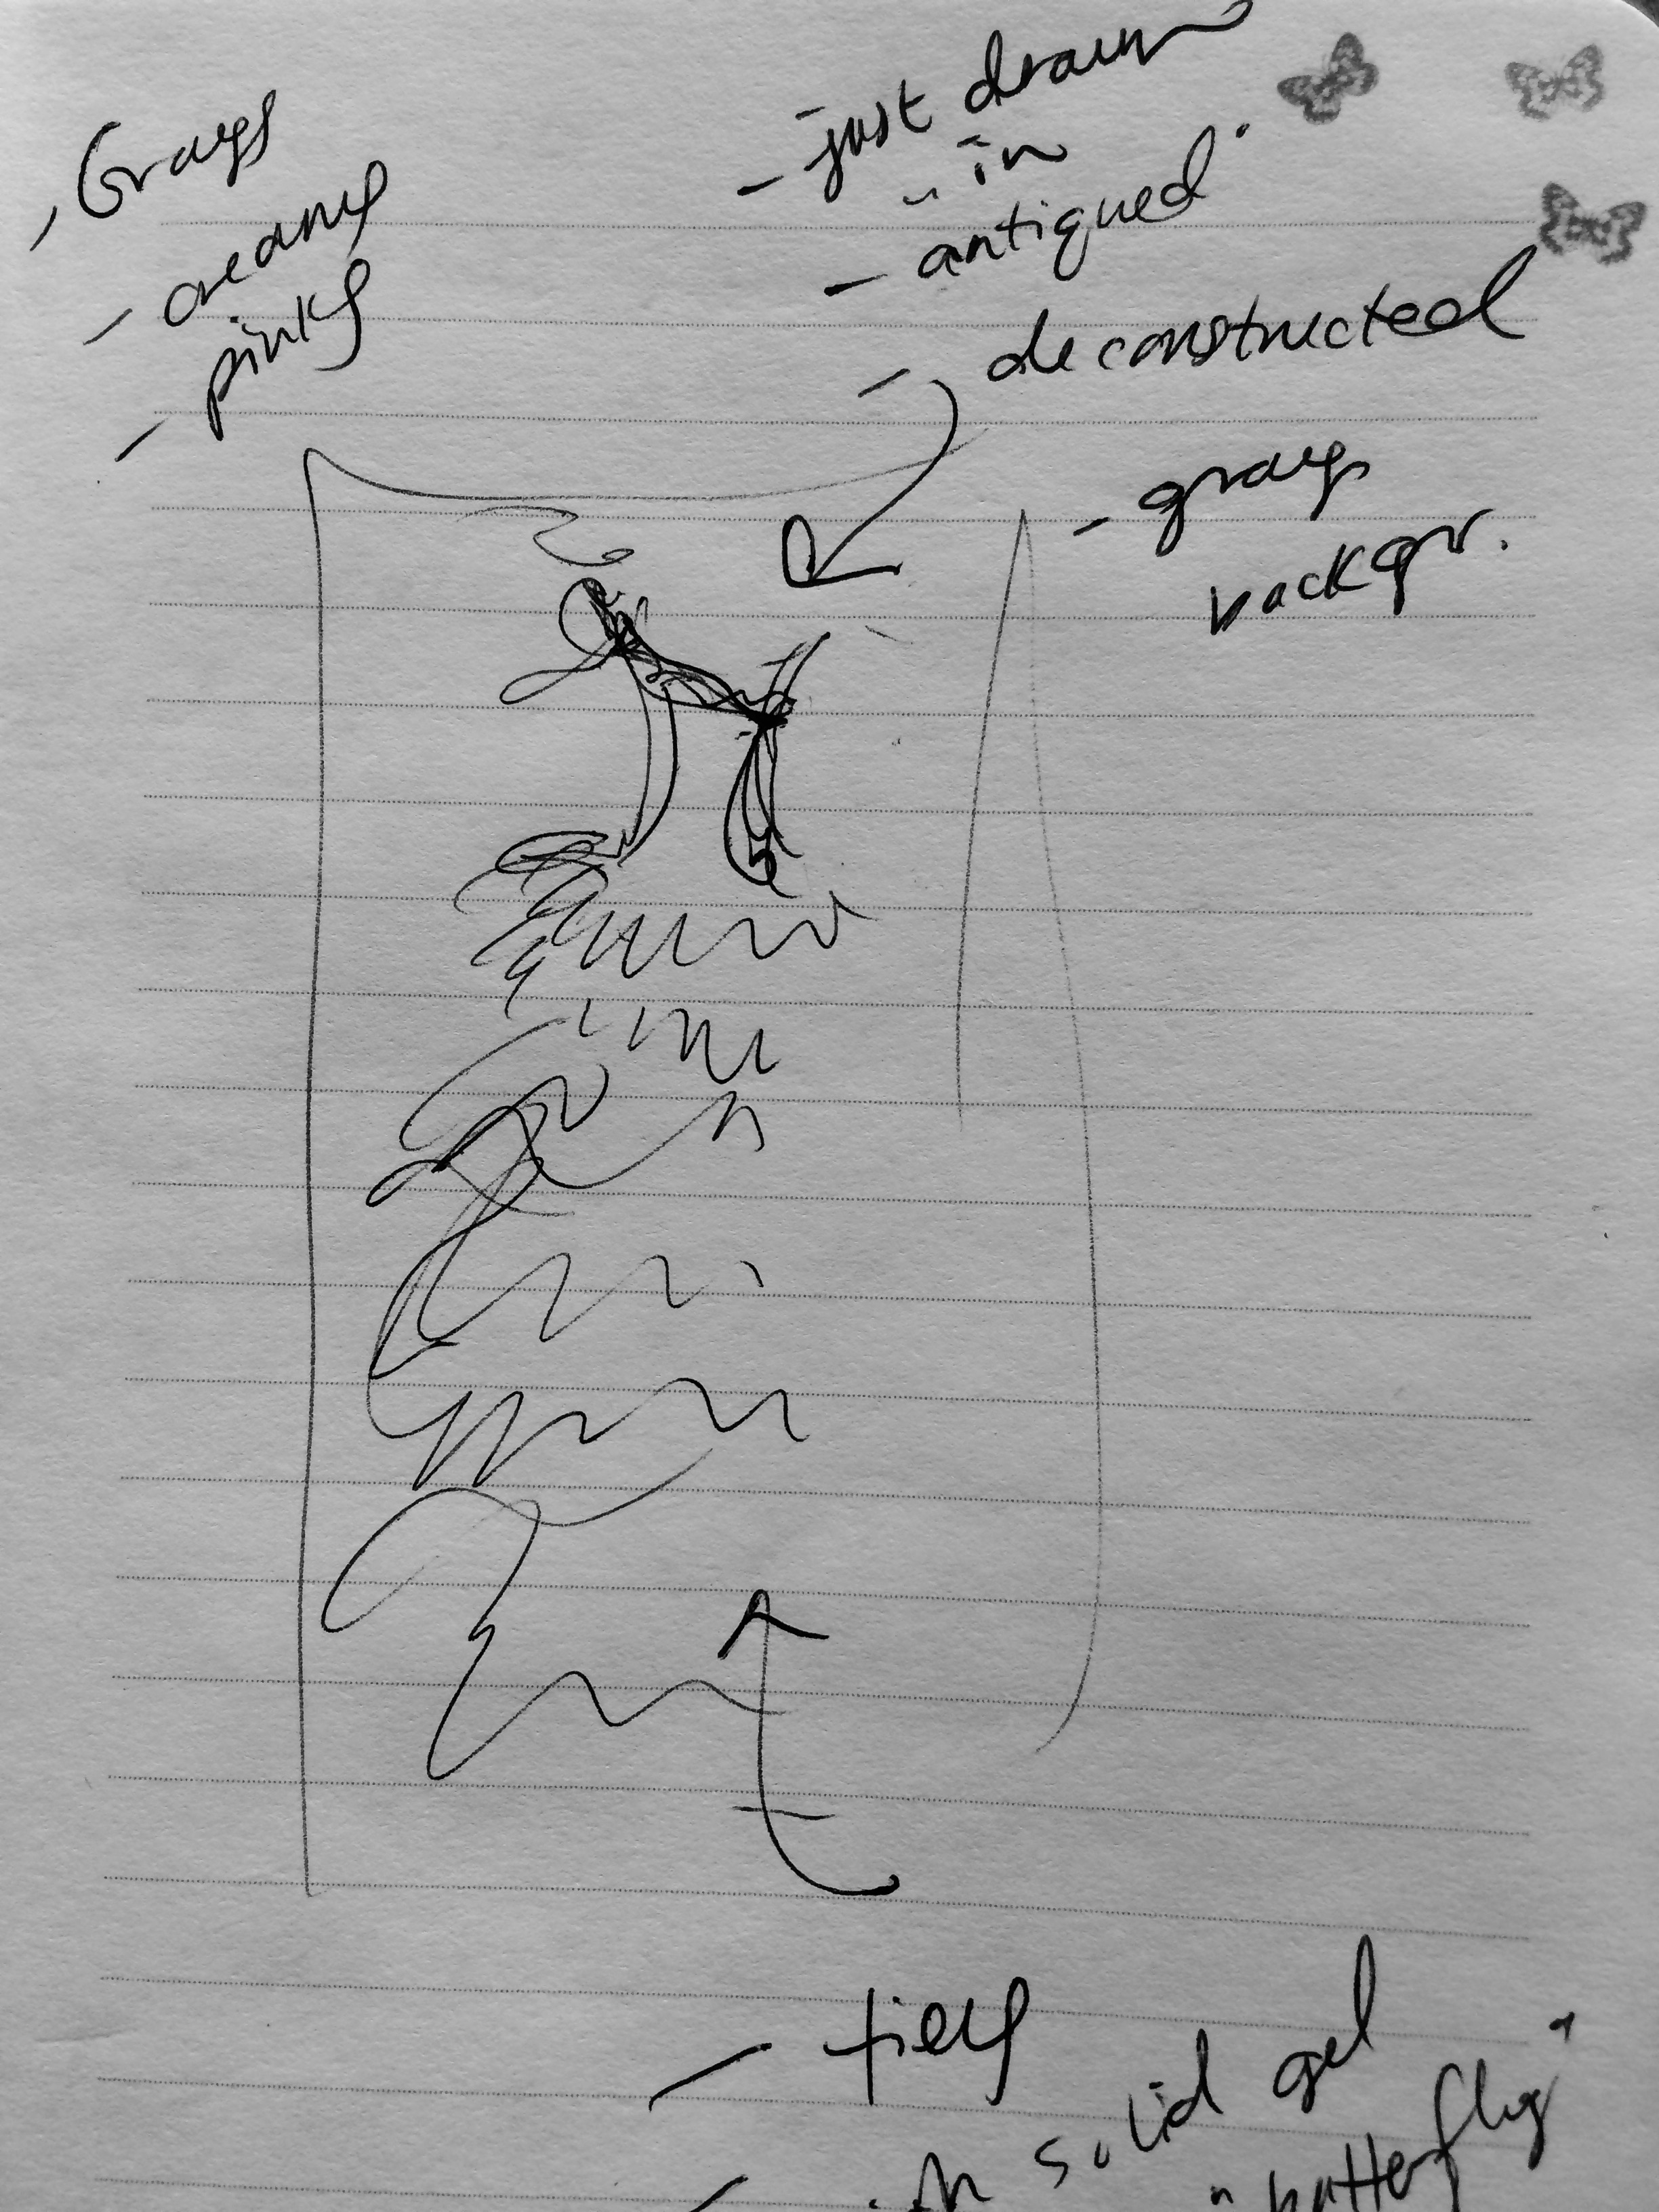 - Grays
- creams
- pinks
- just drawn
" in
- antiqued.
- deconstructed
- grays
backgr.
- tiers
- in solid gel
" butterfly "